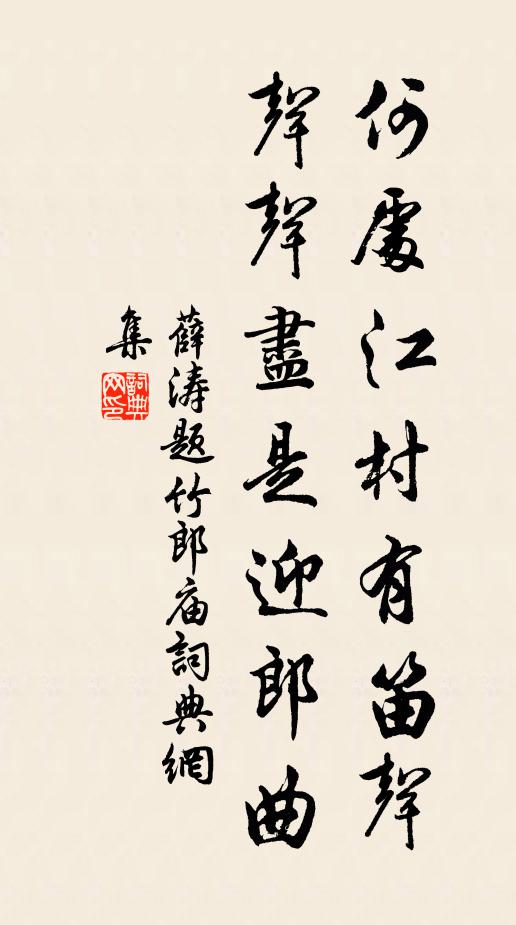 何處江村有笛聲
聲聲盡是迎郎曲
薛涛题竹郎庙詞典網
集
詞典
网印